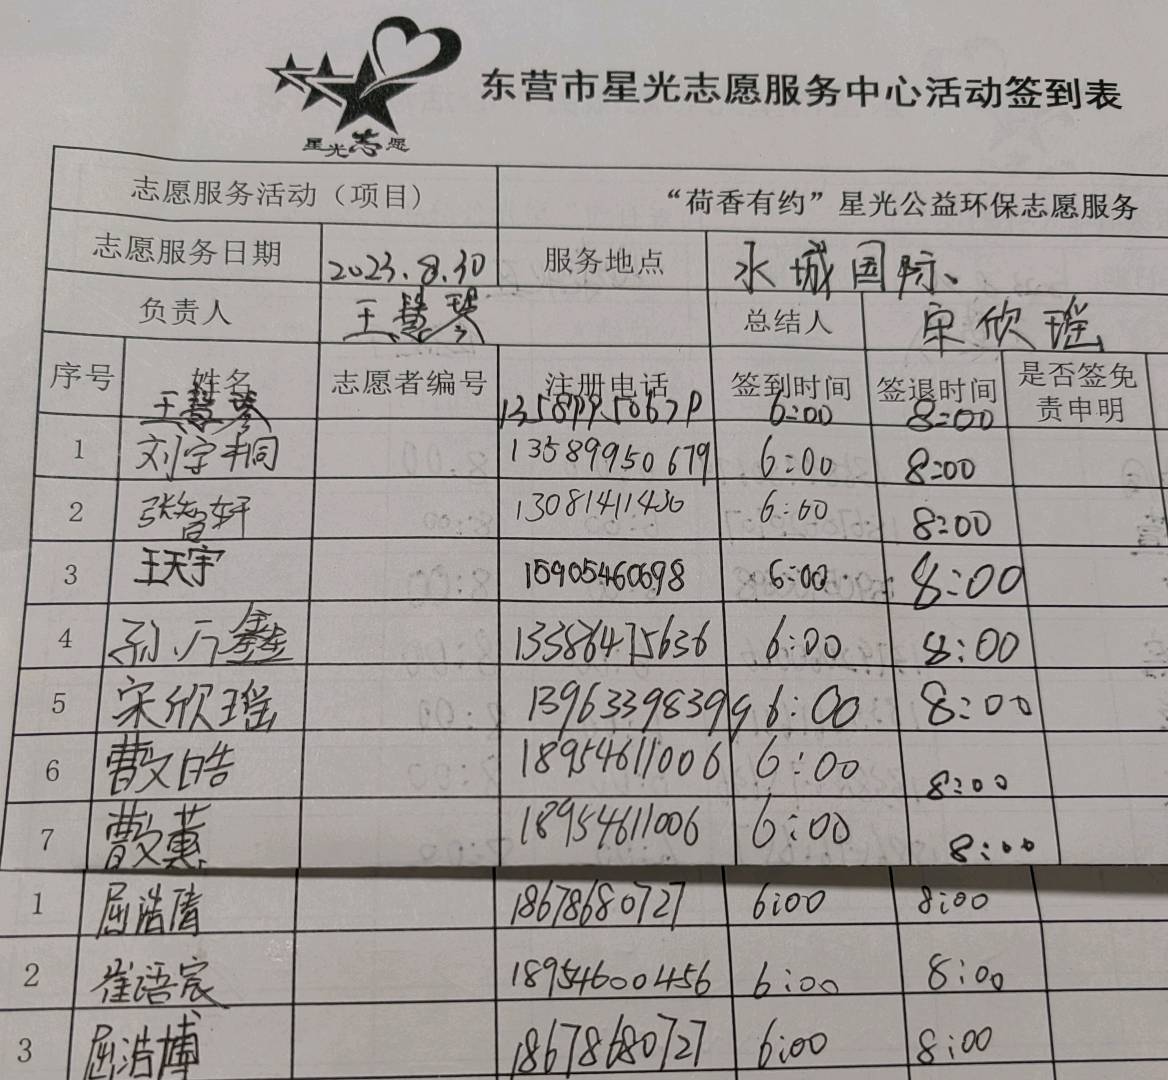 东营市星光志愿服务中心活动签到表
星光志愿
志愿服务活动（项目） “荷香有约”星光公益环保志愿服务
志愿服务日期 2023.8.30 服务地点 水城国际、
负责人 王慧琴 总结人 宋欣瑶
序号 姓名 志愿者编号 注册电话 签到时间 签退时间 是否签免责申明
王慧琴 6:00 8:00
1 刘宇桐 13589950679 6:00 8:00
2 张智轩 13081411430 6:00 8:00
3 王天宇 15905460698 6:00 8:00
4 孙万鑫 13386475636 6:00 8:00
5 宋欣瑶 13963398399 6:00 8:00
6 曹文皓 18954611006 6:00 8:00
7 曹文蕙 18954611006 6:00 8:00
1 屈浩 18678680727 6:00 8:00
2 崔语宸 18954600456 6:00 8:00
3 屈浩博 18678680727 6:00 8:00